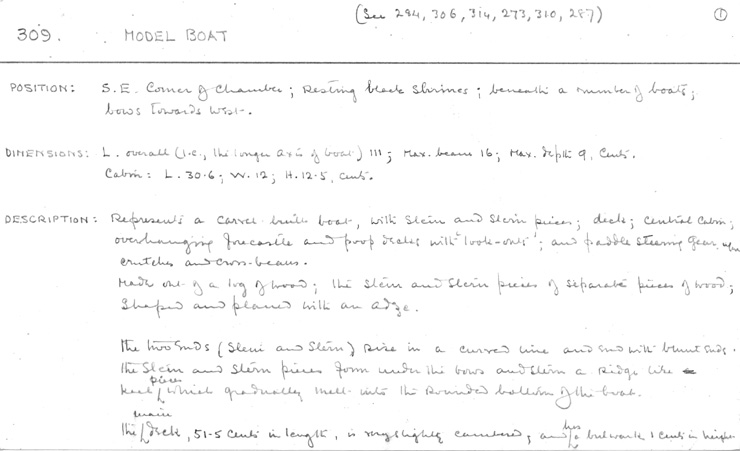 (See 284, 306, 314, 273, 310, 287)
①
309. MODEL BOAT
POSITION: S.E. Corner of Chamber; resting black shrines; beneath a number of boats;
bows towards West.
DIMENSIONS: L. overall (i.e., the longer axis of boat) 111; Max. beam 16; Max. depth 9, Cents.
Cabin: L. 30.6; W. 12; H. 12.5, Cents.
DESCRIPTION: Represents a carvel built boat, with Stem and Stern pieces; deck; central Cabin;
overhanging forecastle and poop decks with "look-outs"; and paddle steering gear, upon
crutches and cross-beams.
Made out of a log of wood; the Stem and Stern pieces of separate pieces of wood;
Shaped and planed with an adze.
The two Ends (Stem and Stern) rise in a curved line and end with blunt ends.
The Stem and Stern pieces form under the bows and stern a ridge like
keel pieces which gradually melt into the rounded bottom of the boat.
The main deck, 51.5 Cents in length, is very slightly cambered; and has a bulwark 1 cent in height